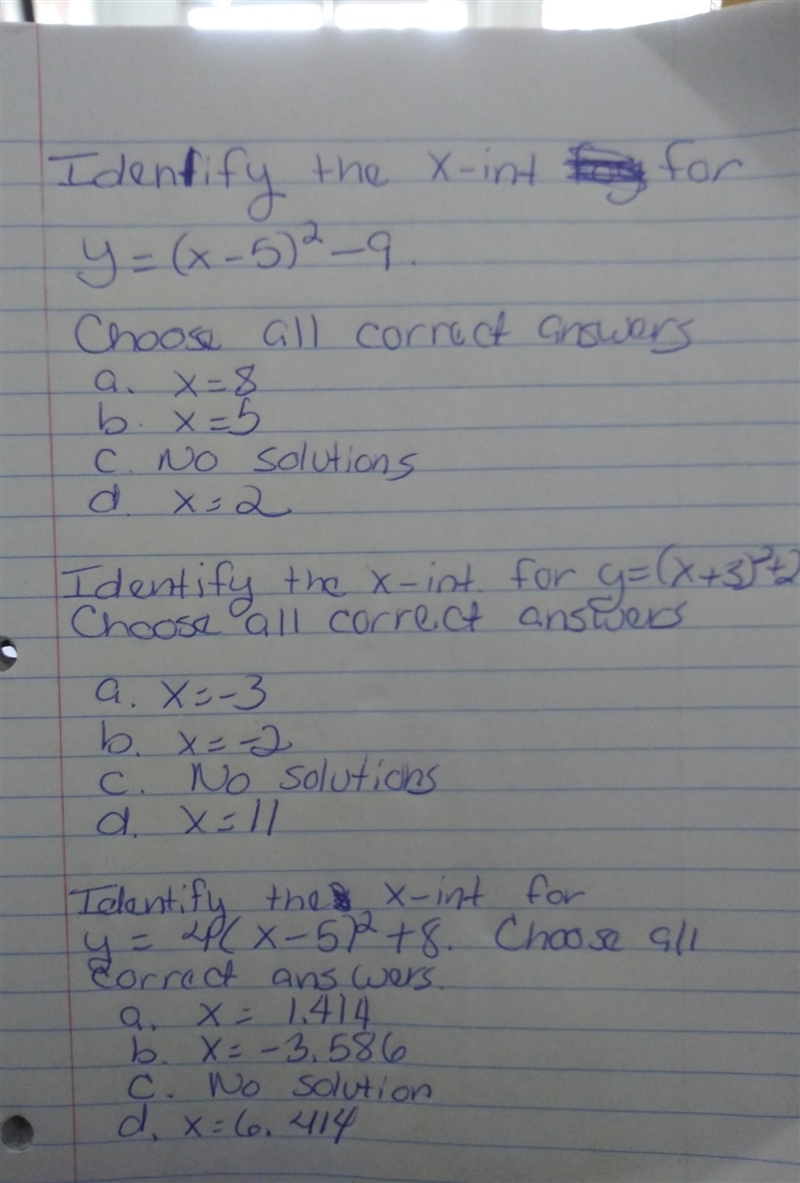 Identify the x-int for
y = (x - 5)² - 9.
Choose all correct answers
a. x = 8
b. x = 5
c. No solutions
d. x = 2
Identify the x-int. for y = (x + 3)² + 2
Choose all correct answers
a. x = -3
b. x = -2
c. No solutions
d. x = 11
Identify the x-int for
y = 4(x - 5)² + 8. Choose all
correct answers.
a. x = 1.414
b. x = -3.586
c. No solution
d. x = 6.414